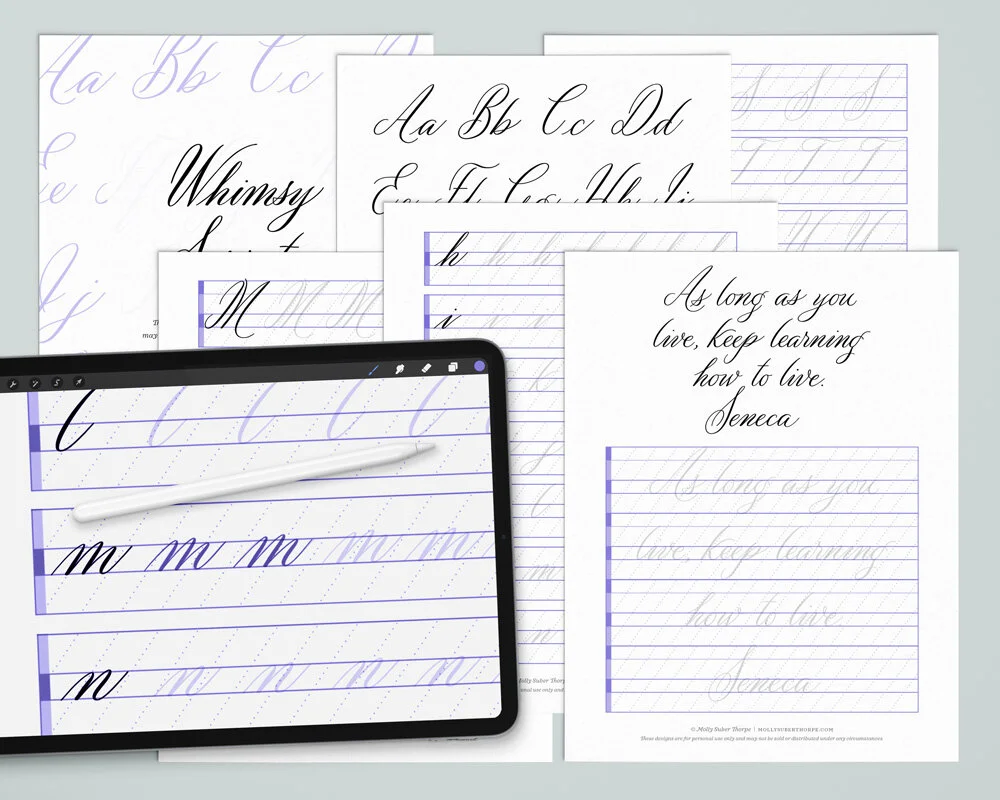 Aa Bb Cc
Whimsy
Aa Bb Cc Dd
Ee Ff Gg Hh Ii
S S S
T T T
U U
Jj
M M M M
h h h h h h h
i i i i
k
l
m
n
l l l l l
m m m m m
n n n n n
As long as you
live, keep learning
how to live.
Seneca
As long as you
live, keep learning
how to live.
Seneca
© Molly Suber Thorpe | MOLLYSUBERTHORPE.COM
These designs are for personal use only and may not be sold or distributed under any circumstances